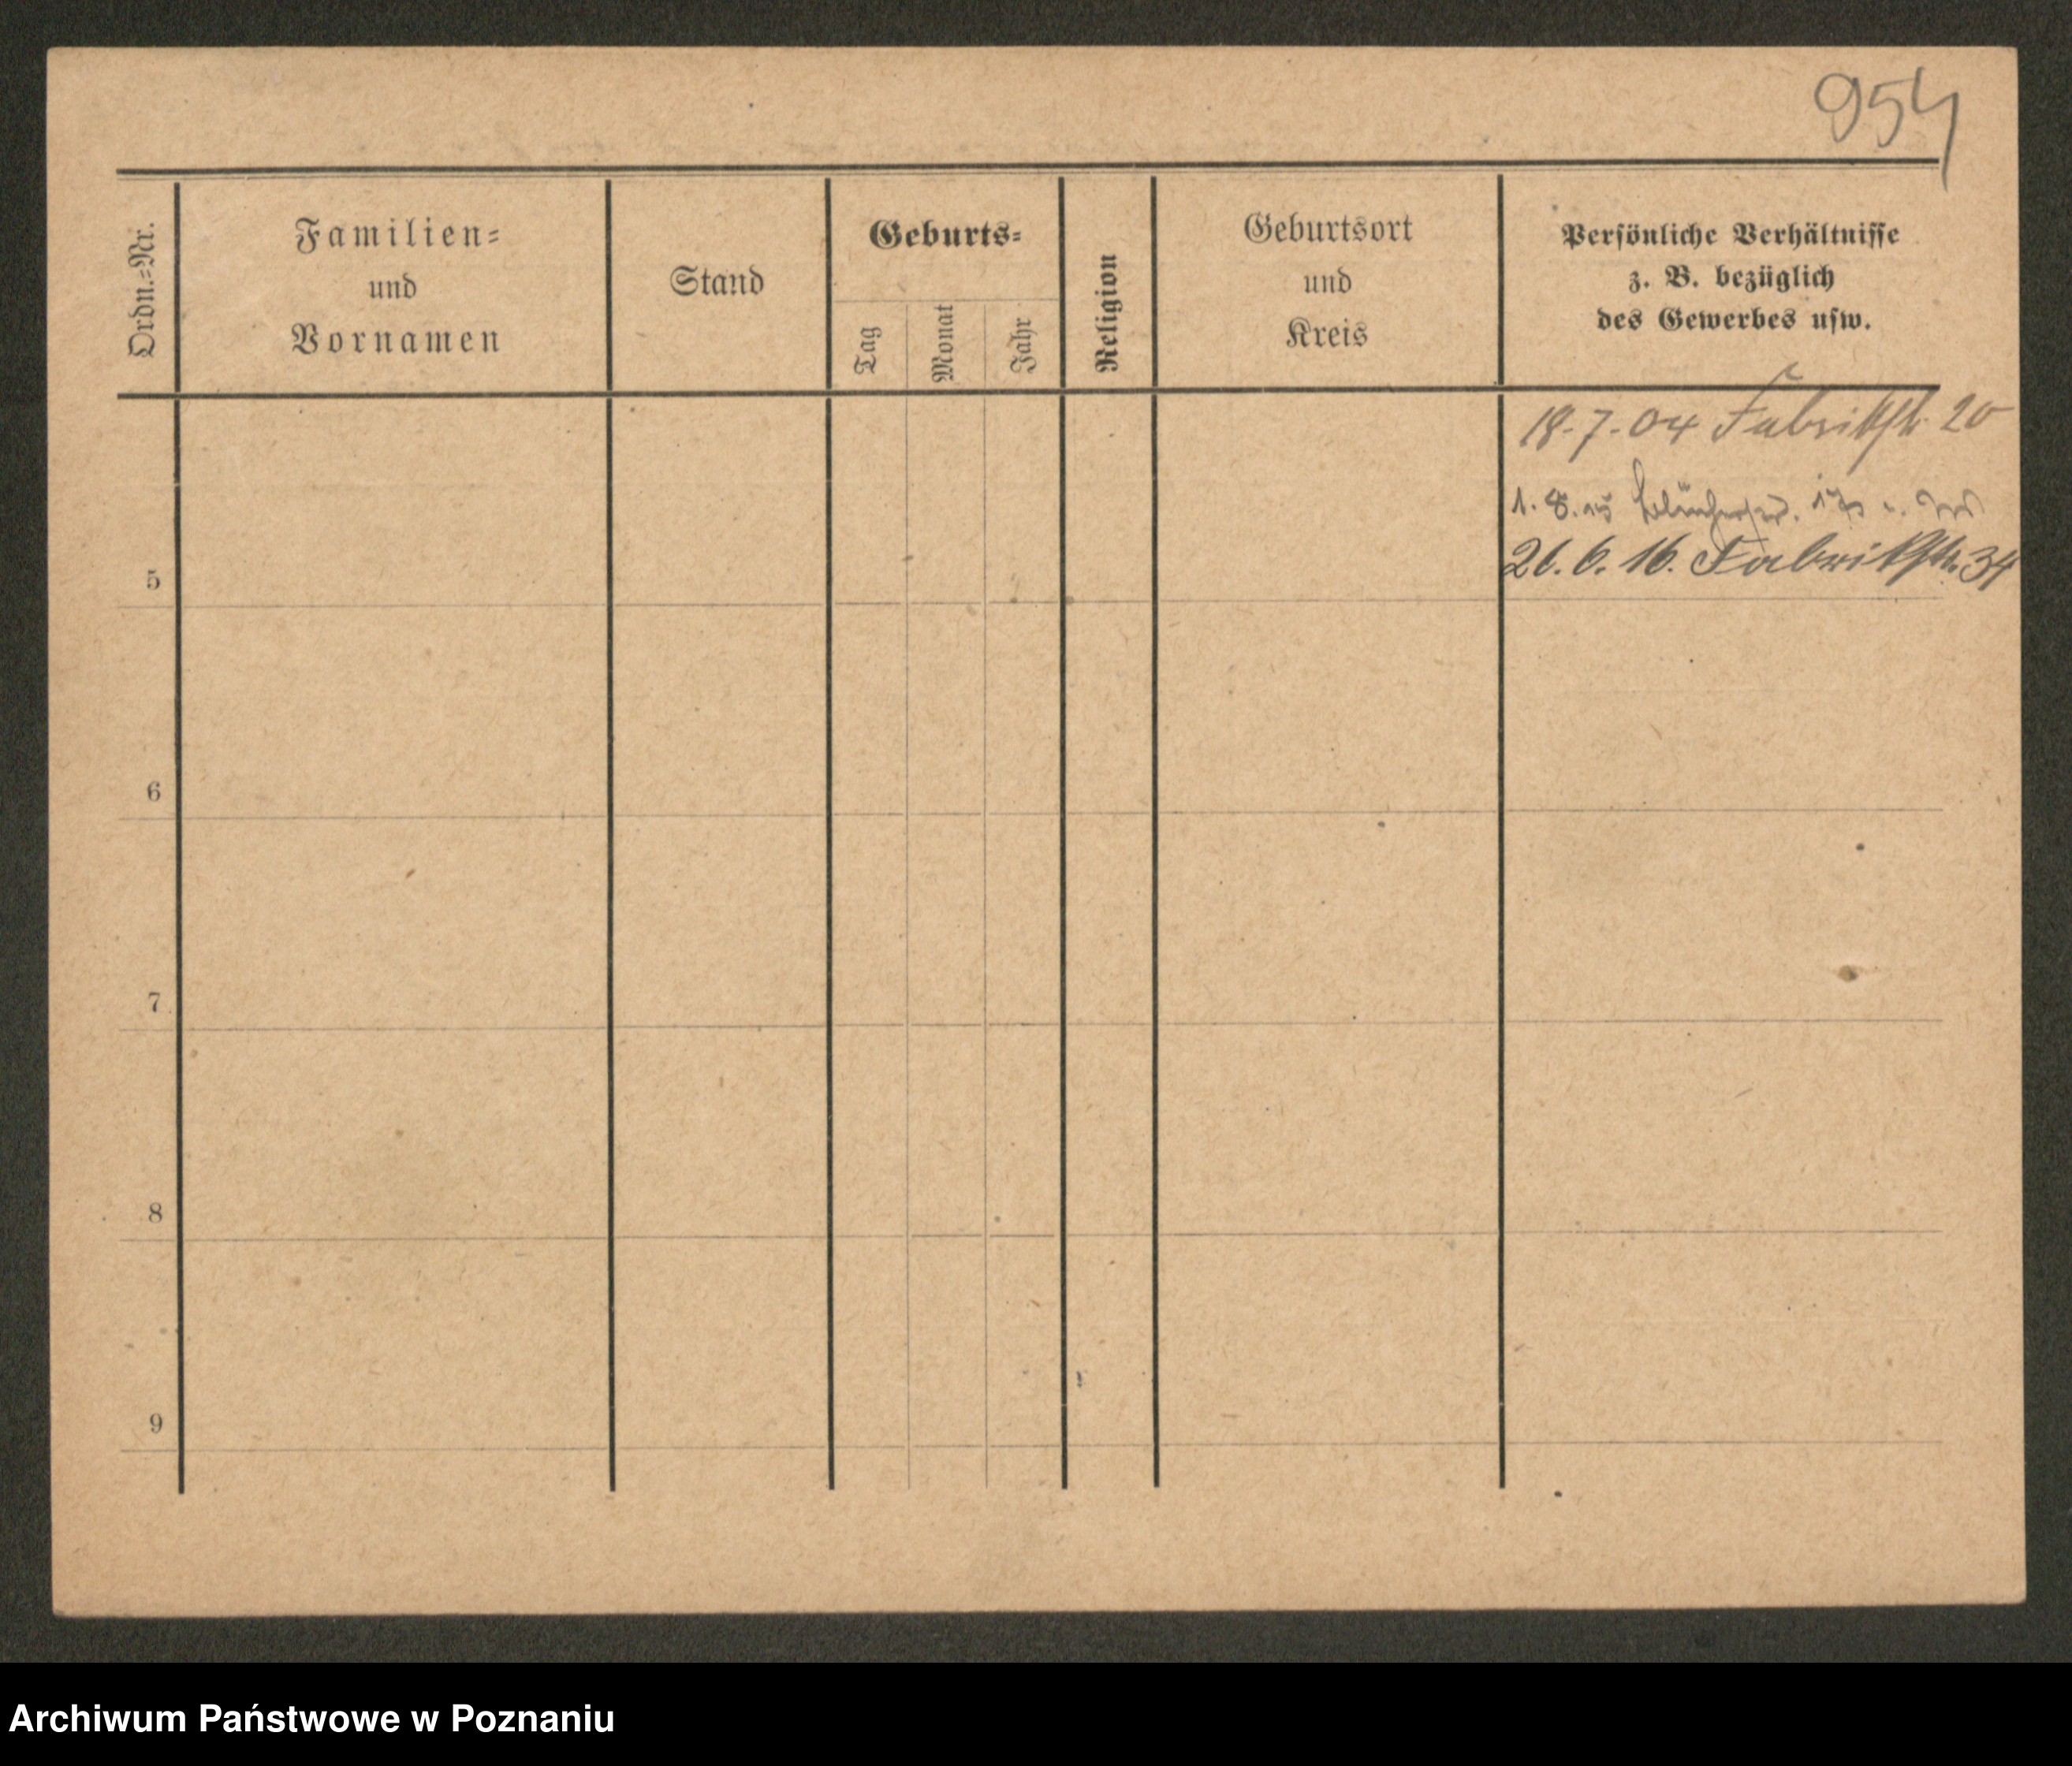 954
Ordn.=Nr.
Familien=
und
Vornamen
Stand
Geburts=
Tag
Monat
Jahr
Religion
Geburtsort
und
Kreis
Persönliche Verhältnisse
z. B. bezüglich
des Gewerbes usw.
18.7.04 Fabrikstr. 20
1.8.15 Blücherstr.
26.6.16. Fabrikstr. 34
5
6
7
8
9
Archiwum Państwowe w Poznaniu